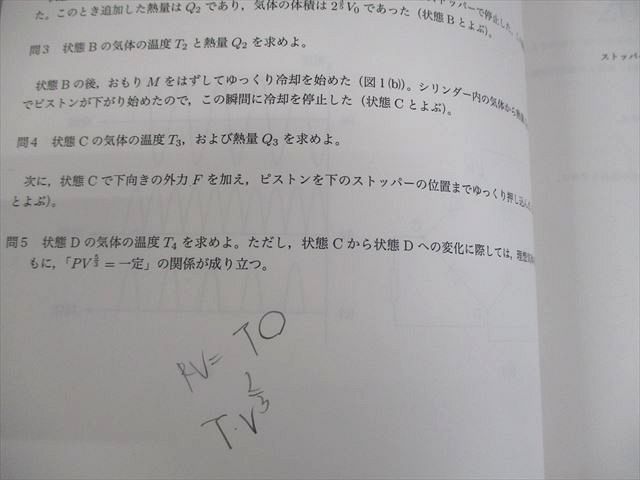 た。このとき追加した熱量は Q₂ であり，気体の体積は 2^{3/2}V₀ であった（状態 B とよぶ）。
問3 状態 B の気体の温度 T₂ と熱量 Q₂ を求めよ。
状態 B の後，おもり M をはずしてゆっくり冷却を始めた（図 1 (b)）。シリンダー内の気体から熱量
でピストンが下がり始めたので，この瞬間に冷却を停止した（状態 C とよぶ）。
問4 状態 C の気体の温度 T₃，および熱量 Q₃ を求めよ。
次に，状態 C で下向きの外力 F を加え，ピストンを下のストッパーの位置までゆっくり押し込んだ
とよぶ）。
問5 状態 D の気体の温度 T₄ を求めよ。ただし，状態 C から状態 D への変化に際しては，理想気体
もに，「PV^{5/3} = 一定」の関係が成り立つ。
PV = T○
T・V^{2/3}
ストッパ